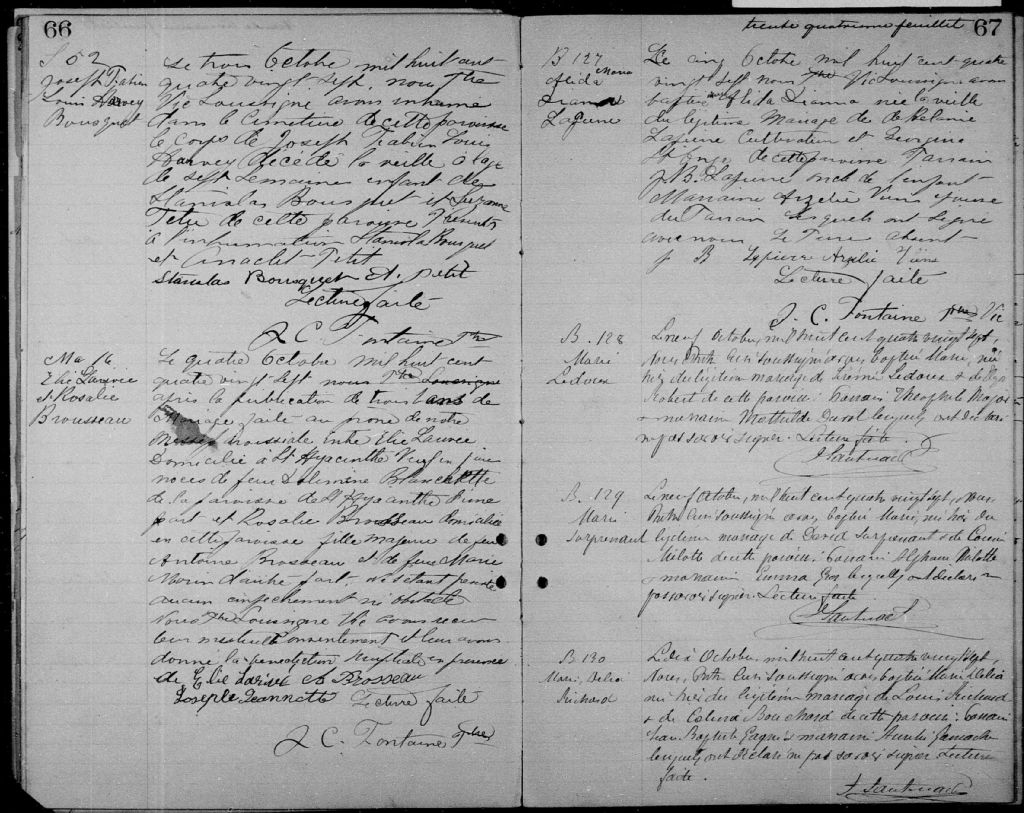 66
S 52
Joseph Fabien
Louis Harvey
Bousquet
Le trois Octobre mil huit cent
quatre vingt sept, nous Ptre
Vic Soussigné avons inhumé
dans le Cimetière de cette paroisse
le corps de Joseph Fabien Louis
Harvey décédé la veille à l'age
de sept Semaines enfant de
Stanislas Bousquet et
Petit de cette paroisse Présents
à l'inhumation Stanislas Bousquet
et Anaclet Petit
Stanislas Bousquet At. petit
Lecture faite
J. C. Fontaine Ptre
Ma 16
Elie Larivée
et Rosalie
Brousseau
Le quatre Octobre mil huit cent
quatre vingt sept nous Ptre Soussigné
après la publication de trois bans de
Mariage faite au prône de notre
Messe paroissiale entre Elie Larivée
Domicilié à St Hyacinthe Veuf en
noces de feue Blanchette
de la paroisse de St Hyacinthe d'une
part et Rosalie Brousseau domiciliée
en cette paroisse fille majeure de feu
Antoine Brosseau et de feue Marie
Morin d'autre part ne s'étant
aucun empêchement ni obstacle
Nous Ptre Soussigné Vic avons reçu
leur mutuel Consentement et leur avons
donné la benediction nuptiale en presence
de Elie Larivée Brosseau
Joseph Jeannotte Lecture faite
J. C. Fontaine Ptre
trente quatrieme feuillet 67
B 127
Maria
Alida
Dianna
Lapierre
Le cinq Octobre mil huit cent quatre
vingt sept nous Ptre Vic Soussigné avons
baptisé Alida Dianna née la veille
du légitime Mariage de
Lapierre Cultivateur et Georgina
St Onge de cette paroisse Parrain
J. B. Lapierre oncle de l'enfant
Marraine Azélie épouse
du Parrain lesquels ont signé
avec nous Le Père absent
J B Lapierre Azélie
Lecture faite
J. C. Fontaine Ptre Vic
B. 128
Marie
Ledoux
Le neuf Octobre, mil huit cent quatre vingt sept,
Nous, Prêtre Curé soussigné avons baptisé Marie, née
du légitime mariage de Ledoux & de
Robert de cette paroisse: Parrain Théophile Major
marraine Mathilde lesquels ont déclaré
ne pas savoir signer. Lecture faite.
B. 129
Marie
Surprenant
Le neuf Octobre, mil huit cent quatre vingt sept, Nous
Prêtre Curé soussigné avons baptisé Marie, née du
légitime mariage de David Surprenant & de
Milotte de cette paroisse: Parrain Milotte
& marraine Emma lesquels ont déclaré ne
pas savoir signer. Lecture faite
B 130
Marie, Delia
Richard
Le dix Octobre, mil huit cent quatre vingt sept,
Nous, Prêtre Curé soussigné avons baptisé Marie Delia
née du légitime mariage de Louis Richard
& de Bouchard de cette paroisse: Parrain
Jean Baptiste Gagné & marraine
lesquels ont déclaré ne pas savoir signer Lecture
faite.